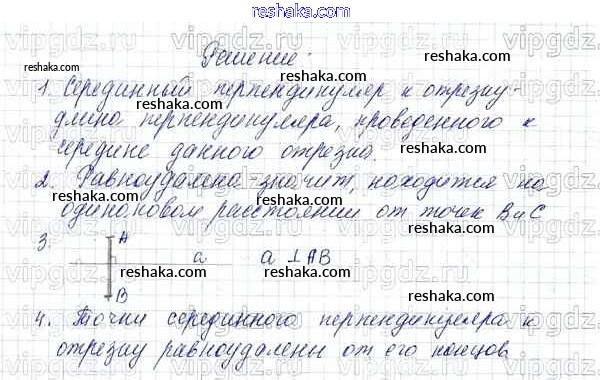 reshaka.com
Решение:
1. Серединный перпендикуляр к отрезку -
длина перпендикуляра, проведенного к
середине данного отрезка.
2. Равноудалена - значит, находится на
одинаковом расстоянии от точек В и С
3. A a a ⊥ AB
B
4. Точки серединного перпендикуляра к
отрезку равноудалены от его концов